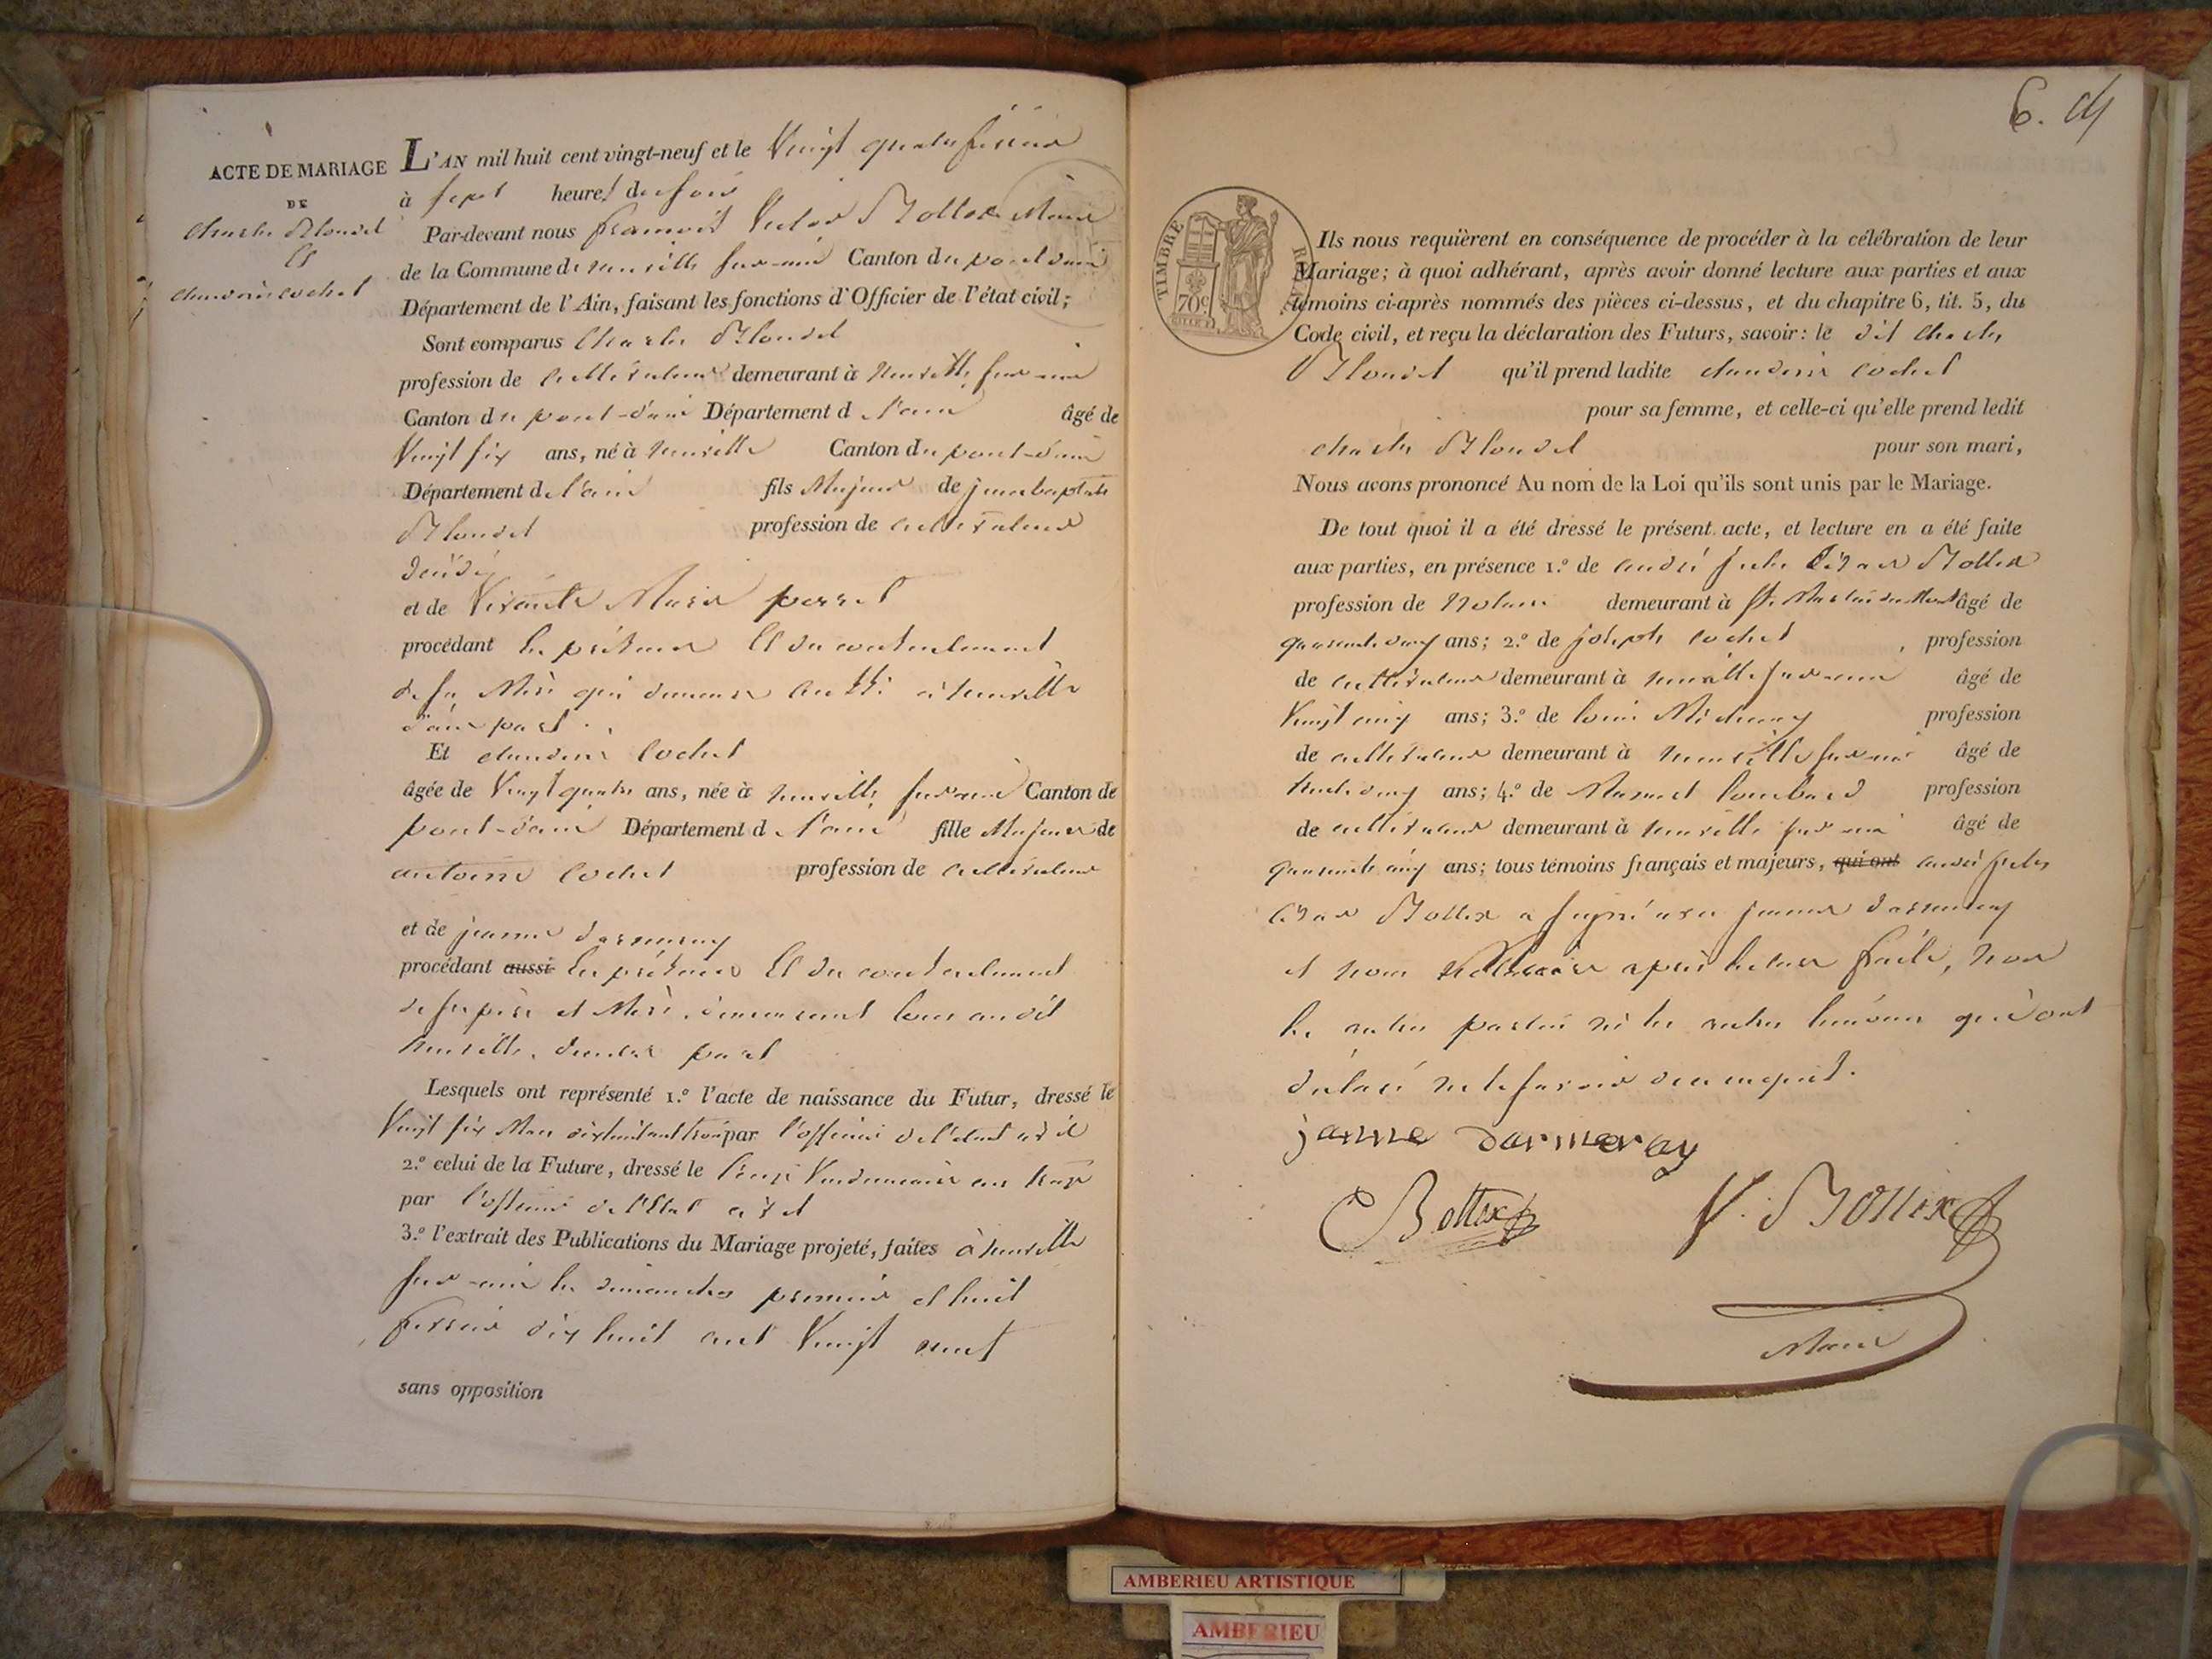 ACTE DE MARIAGE
DE
Charles Blondel
Et
claudine cochet
L'AN mil huit cent vingt-neuf et le Vingt quatre fevrier
à sept heures du soir
Par-devant nous françois Victor Bottex Maire
de la Commune de neuville sur-ain Canton du pont d'ain
Département de l'Ain, faisant les fonctions d'Officier de l'état civil;
Sont comparus Charles Blondel
profession de cultivateur demeurant à neuville sur-ain
Canton du pont-d'ain Département d l'ain âgé de
Vingt six ans, né à neuville Canton du pont-d'ain
Département de l'ain fils Majeur de jean baptiste
Blondel profession de cultivateur
décédé
et de Marie perret
procédant En présence Et du consentement
de sa Mère qui demeure aussi à neuville
d'une part.
Et claudine Cochet
âgée de Vingt quatre ans, née à neuville sur ain Canton de
pont-d'ain Département d l'ain fille Majeure de
antoine Cochet profession de cultivateur
et de jeanne darmeray
procédant aussi En présence Et du consentement
de ses père et Mère, demeurant tous audit
neuville, d'autre part
Lesquels ont représenté 1.º l'acte de naissance du Futur, dressé le
Vingt six Mars dix huit cent trois par l'officier de l'état civil
2.º celui de la Future, dressé le Vendemiaire an treize
par l'officier de l'Etat civil
3.º l'extrait des Publications du Mariage projeté, faites à neuville
sur-ain les dimanches premier et huit
fevrier dix huit cent Vingt neuf
sans opposition
6. 
TIMBRE
ROYAL
70c
Ils nous requièrent en conséquence de procéder à la célébration de leur
Mariage; à quoi adhérant, après avoir donné lecture aux parties et aux
témoins ci-après nommés des pièces ci-dessus, et du chapitre 6, tit. 5, du
Code civil, et reçu la déclaration des Futurs, savoir: le dit charles
Blondel qu'il prend ladite claudine cochet
pour sa femme, et celle-ci qu'elle prend ledit
charles Blondel pour son mari,
Nous avons prononcé Au nom de la Loi qu'ils sont unis par le Mariage.
De tout quoi il a été dressé le présent acte, et lecture en a été faite
aux parties, en présence 1.º de andré jules César Bottex
profession de Notaire demeurant à St. Martin du Mont âgé de
quarante cinq ans; 2.º de joseph cochet, profession
de cultivateur demeurant à neuville sur ain âgé de
Vingt cinq ans; 3.º de louis profession
de cultivateur demeurant à neuville sur ain âgé de
trente cinq ans; 4.º de lombard profession
de cultivateur demeurant à neuville sur ain âgé de
quarante cinq ans; tous témoins français et majeurs, qui ont andré jules
César Bottex a signé avec jeanne darmeray
et nous après lecture faite, non
les autres parties ni les autres témoins qui ont
déclaré ne le savoir de ce enquis.
janne darmeray
C Bottex
V. Bottex
Maire
AMBERIEU ARTISTIQUE
AMBERIEU